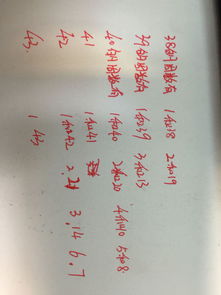 38的因数有 1和38 2和19
39的因数有 1和39 3和13
40的因数有 1和40 2和20 4和10 5和8
41 1和41
42 1和42 2.21 3.14 6.7
43. 1 43